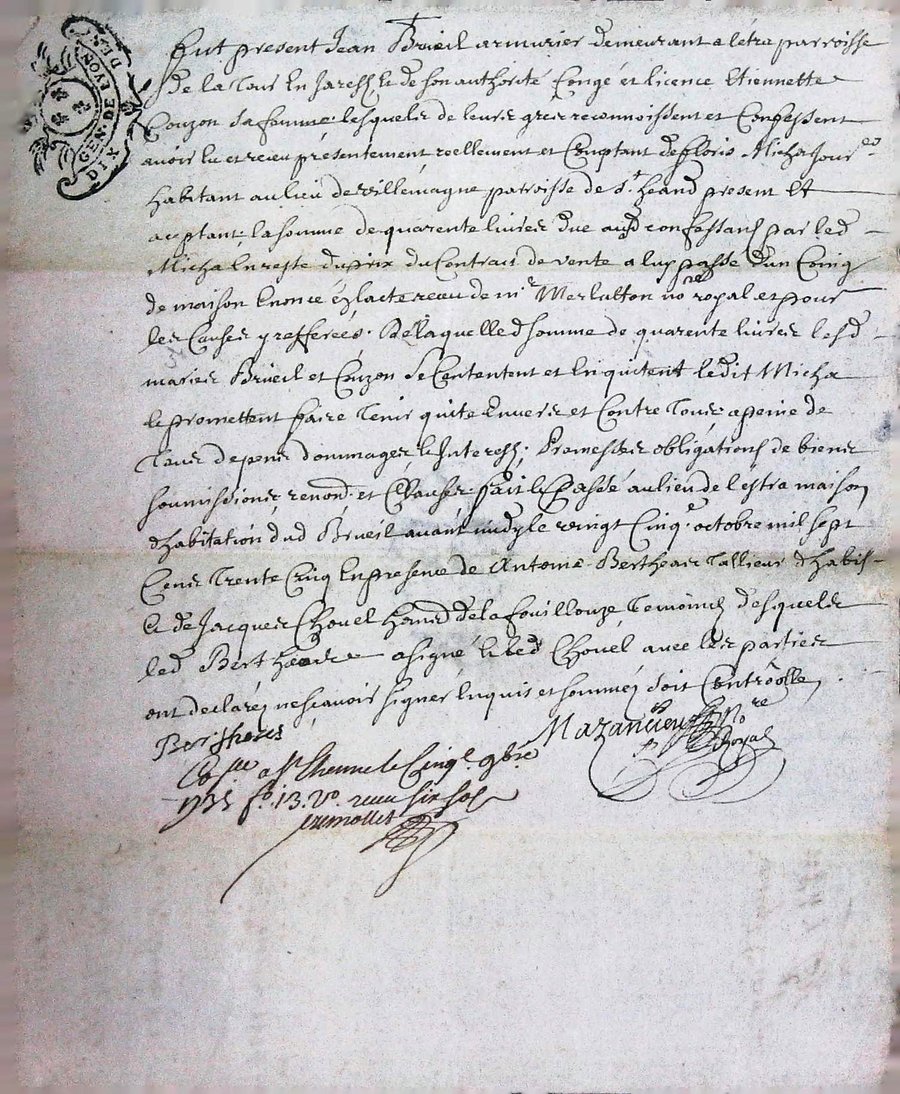 GEN. DE LYON
DIX
Fut present Jean Brüeil armurier demeurant a létra parroisse
De la Tour En Jarest, & de son authorité Congé et licence Etiennette
Couzon sa femme. lesquels de leurs grez reconnoissent et Confessent
avoir Eu et receu presentement reellement et Comptant de floris Micha
habitant au lieu de villemagne parroisse de St heand present Et
acceptant, la somme de quarente livres due par led
Micha En reste du prix du Contract de vente a luy passée d'un
de maison Enoncé l'acte receu de me no.re royal et pour
les Causes y refferées. De laquelle d. somme de quarente livres lesd
maries Brüeil et Couzon se Contentent et En quitent ledit Micha
le promettent faire Tenir quite Envers et Contre Tous, a peine de
Tous depens dommages & Interests. Promesses obligations de biens
soumissions, renond. et Clauses. fait & Passé au lieu de l'estra maison
d'habitation dud Brüeil avant midy le vingt Cinqe octobre mil sept
Cens Trente Cinq En presence de Antoine Bertheas Tallieur d'habits
& de Jacques Chovel de la fouillouze Temoins desquels
led Bertheas a signé & led Chovel avec les parties
ont declarez ne scavoir signer Enquis et sommez soit Controollé,
Bertheas
Mazancieu No.re
Royal
a St Etienne le Cinqe 9bre
1735 fo. 13. Vo. receu six sols